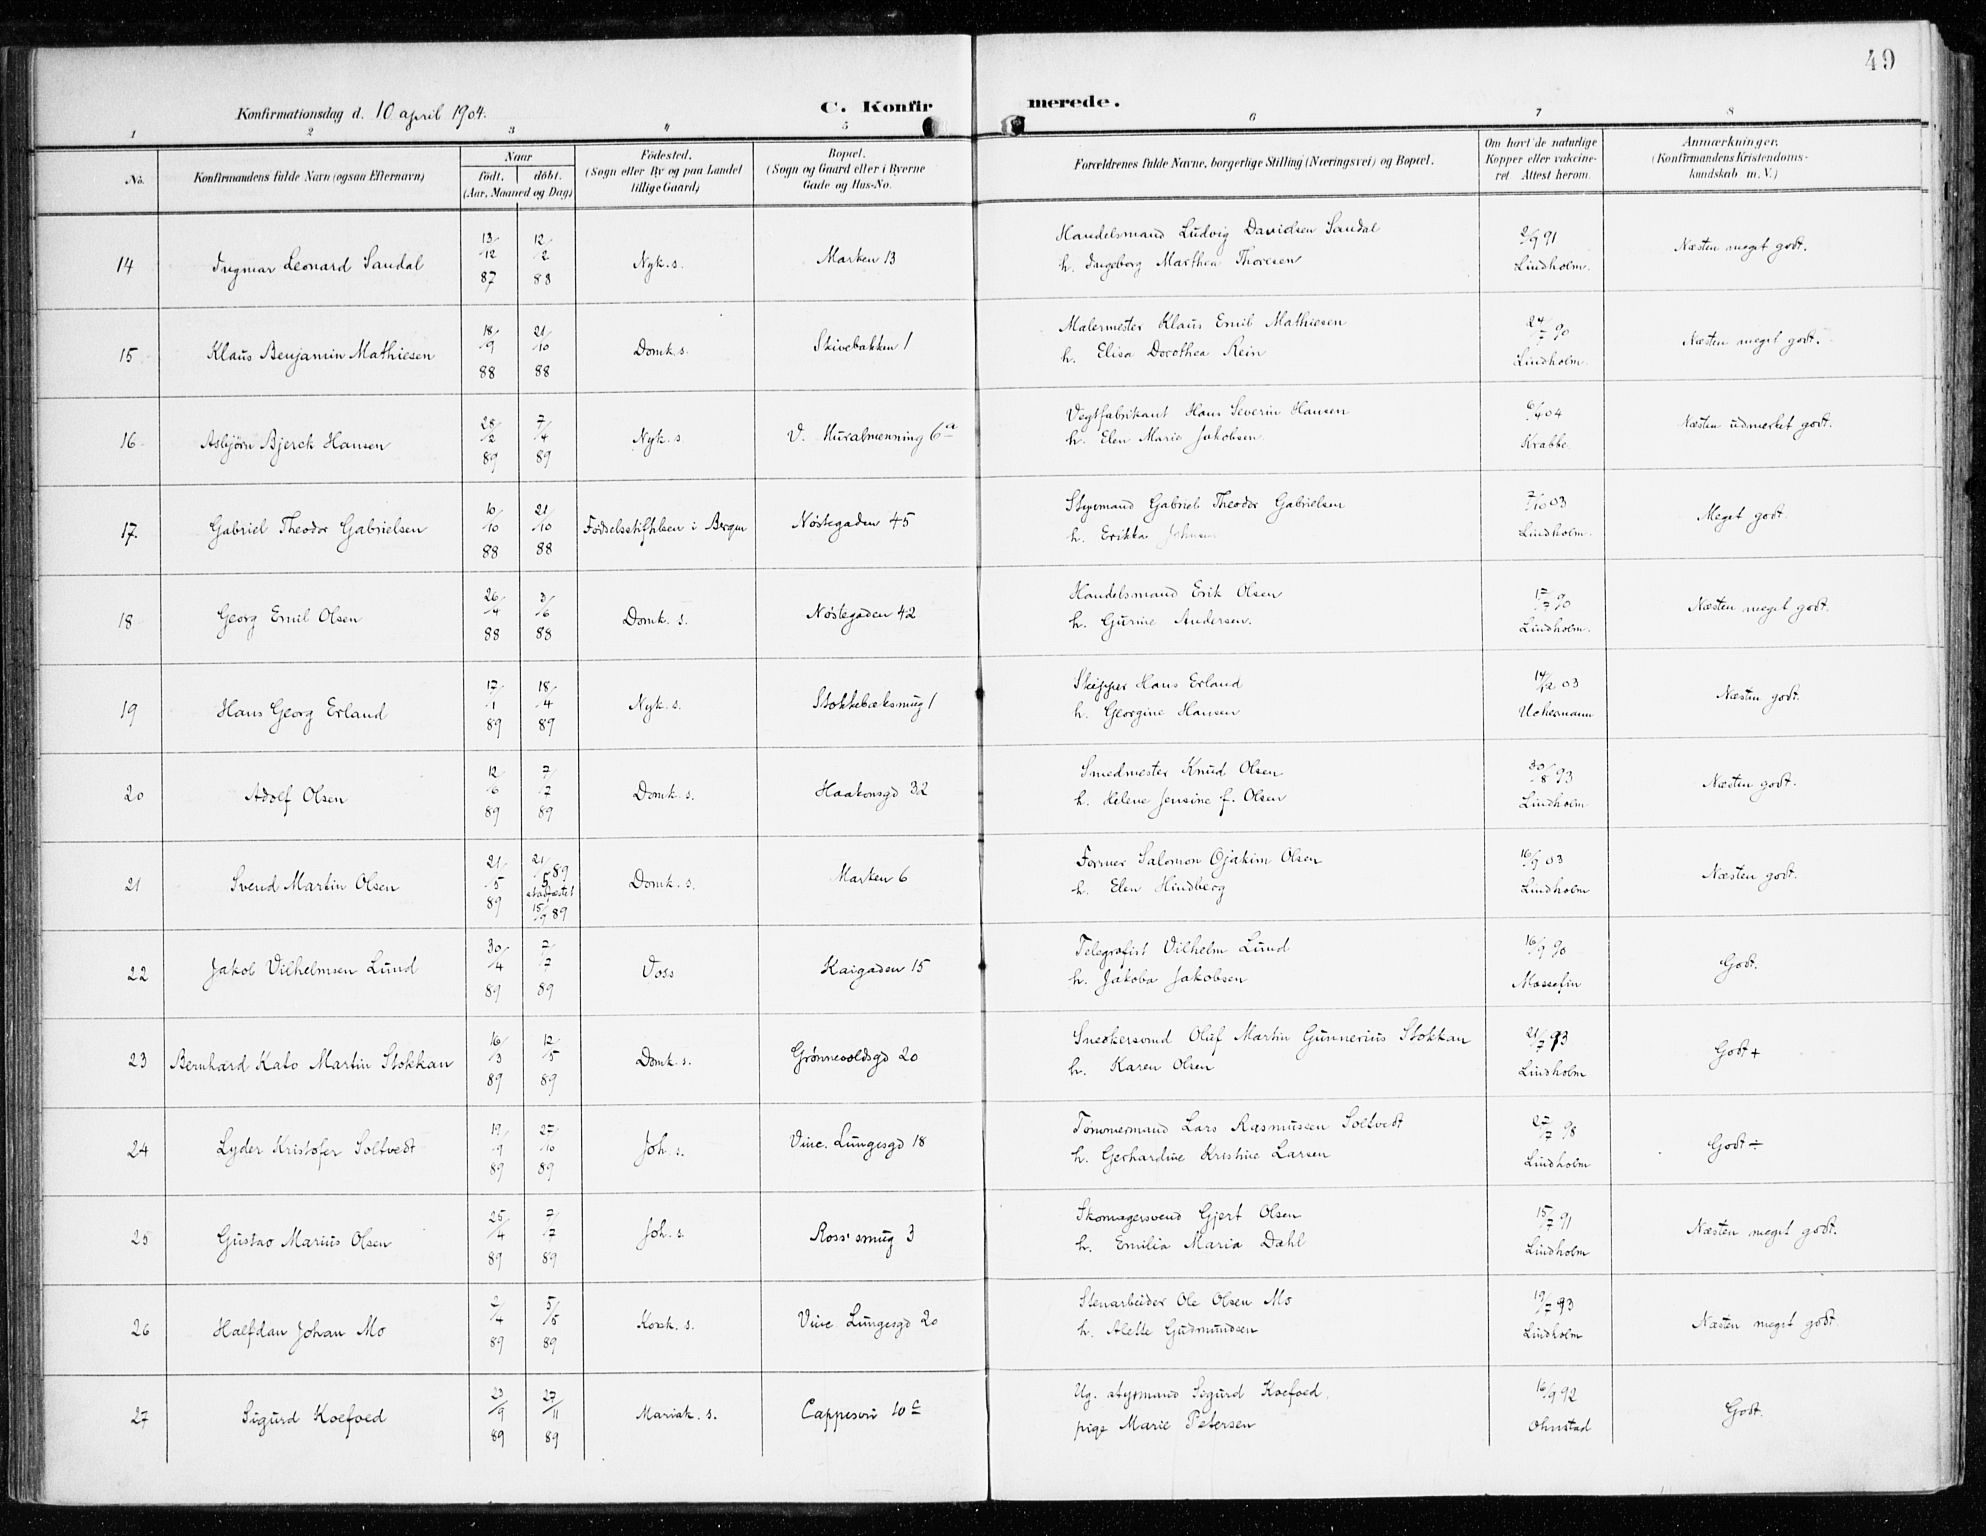 49
Konfirmationsdag d. 10 april 1904.
C. Konfirmerede.
1 2 3 4 5 6 7 8
No.
Konfirmandens fulde Navn (ogsaa Efternavn)
Naar
født. døbt.
(Aar, Maaned og Dag)
Fødested.
(Sogn eller By og paa Landet
tillige Gaard)
Bopæl.
(Sogn og Gaard eller i Byerne
Gade og Hus-No.
Forældrenes fulde Navne, borgerlige Stilling (Næringsvei) og Bopæl.
Om havt de naturlige
Kopper eller vakcine-
ret Attest herom.
Anmærkninger.
(Konfirmandens Kristendoms-
kundskab m. V.)
14 Ingmar Leonard Sandal 13/12 87 12/2 88 Nyk. s. Marken 13 Handelsmand Ludvig Davidsen Sandal
h. Ingeborg Marthea Thoresen 2/9 91 Lindholm. Næsten meget godt.
15 Klaus Benjamin Mathiesen 18/9 88 21/10 88 Domk. s. Skivebakken 1 Malermester Klaus Emil Mathiesen
h. Elisa Dorothea Rein 24/7 90 Lindholm. Næsten meget godt.
16 Asbjørn Bjerck Hansen 28/2 89 7/4 89 Nyk. s. V. Muralmenning 6a Vegtfabrikant Hans Severin Hansen
h. Elen Marie Jakobsen. 04 Krabbe. Næsten udmerket godt.
17. Gabriel Theodor Gabrielsen 10/10 88 21/10 88 Fødselsstiftelsen i Bergen Nøstegaden 45 Styrmand Gabriel Theodor Gabrielsen
h. Erikka Johnsen 7/10 03 Lindholm. Meget godt.
18 Georg Emil Olsen 26/4 88 3/6 88 Domk. s. Nøstegaden 42 Handelsmand Erik Olsen
h. Gurine Andersen. 17/7 90 Lindholm. Næsten meget godt.
19 Hans Georg Erland 17/1 89 18/4 89 Nyk. s. Stokkebæksmug 1 Skipper Hans Erland
h. Georgine Hansen 14/12 03 Uchermann Næsten godt.
20 Adolf Olsen 12/6 89 7/7 89 Domk. s. Haakonsgd 32 Smedmester Knud Olsen
h. Helene Jensine f. Olsen 30/8 93 Lindholm Næsten godt.
21 Svend Martin Olsen 21/5 89 21/5 89 stadfæstet 15/9 89 Domk. s. Marken 6 Former Salomon Ojakim Olsen
h. Elen Hindberg 16/9 03 Lindholm Næsten godt.
22 Jakob Vilhelmsen Lund 30/4 89 7/7 89 Voss Kaigaden 15 Telegrafist Vilhelm Lund
h. Jakoba Jakobsen 16/9 90 Massefin Godt.
23 Bernhard Kato Martin Stokkan 16/3 89 12/5 89 Domk. s. Grønnevoldsgd 20 Snedkersvend Oluf Martin Gunnerius Stokkan
h. Karen Olsen 21/7 93 Lindholm Godt +
24 Lyder Kristofer Soltvedt 19/9 89 27/10 89 Joh. s. Vinc. Lungesgd 18 Tømmermand Lars Rasmussen Soltvedt
h. Gerhardine Kristine Larsen 27/7 98 Lindholm Godt ÷
25 Gustav Marius Olsen 25/4 89 7/7 89 Joh. s. Ross' smug 3 Skomagersvend Gjert Olsen
h. Emilia Maria Dahl 15/7 91 Lindholm Næsten meget godt.
26 Halfdan Johan Mo 2/4 89 5/5 89 Korsk. s. Vinc. Lungesgd 20 Stenarbeider Ole Olsen Mo
h. Alette Gudmundsen 19/7 93 Lindholm Næsten meget godt.
27 Sigurd Koefoed 23/9 89 27/11 89 Mariak. s. Cappesvei 10c Ug. styrmand Sigurd Koefoed.
pige Marie Petersen 16/9 92 Ohnstad Godt.